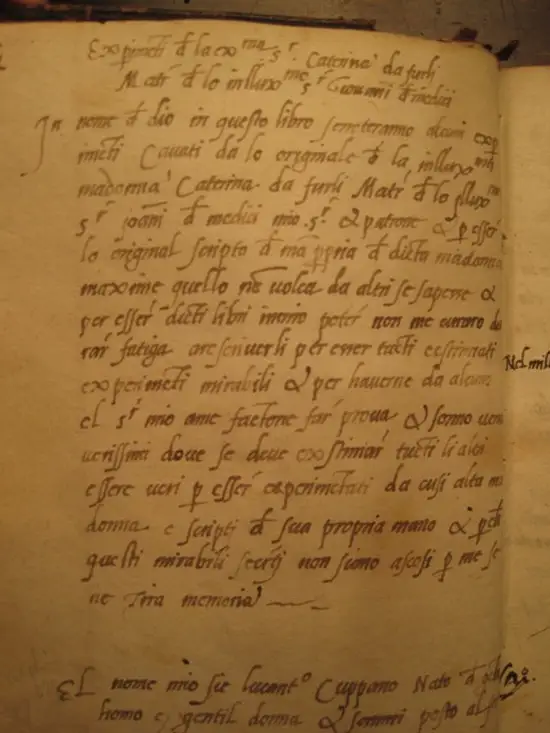 Experimẽti đ la ex.ma s.r Caterina da furli
Matr̃ đ lo inllux.mo s.r Giovanni đ medici
In nome đ dio in questo libro se noteranno alcuni exp
imẽti Cavati da lo originale đ la inllux.ma
madonna Caterina da furli Matr̃ đ lo Illux.mo
s.r joanni đ medici mio s.r & patrone & p esser
lo original scripto đ mã ppria đ dicta madonna
maxime quello nõ volea da altri se sapene &
per esser dicti libri in mio poter non me curaro du
rar fatiga a rescriverli per esser tucti
experimẽti mirabili & per haverne da alcuni
el s.r mio ame factone far prova & sonno veri
verissimi dove se deve existimar tucti li altri
essere veri p esser experimẽtati da cusi alta ma
donna e scripti đ sua propria mano &
questi mirabili secrẽti non siano ascosi p me se
ne tira memoria
Nel mill
El nome mio sie lucant.o Cuppano Nato đ
homo e gentil donna & posto al